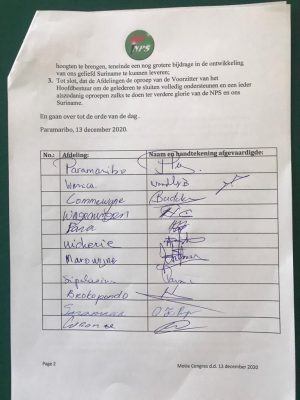 NPS
hoogten te brengen, teneinde een nog grotere bijdrage in de ontwikkeling
van ons geliefd Suriname te kunnen leveren;
3. Tot slot, dat de Afdelingen de oproep van de Voorzitter van het
Hoofdbestuur om de gelederen te sluiten volledig ondersteunen en een ieder
alszodanig oproepen zulks te doen ter verdere glorie van de NPS en ons
Suriname.
En gaan over tot de orde van de dag.
Paramaribo, 13 december 2020.
No.: Afdeling: Naam en handtekening afgevaardigde:
Paramaribo
Wanica
Commewijne
Wageningen
Para
Nickerie
Marowijne
Sipaliwini
Brokopondo
Saramacca
Coronie
Page 2 Motie Congres d.d. 13 december 2020